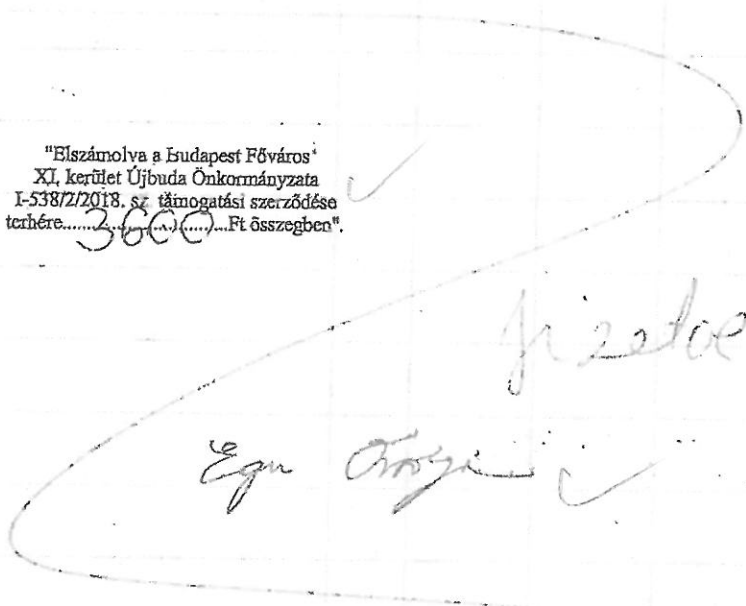 "Elszámolva a Budapest Főváros
XI, kerület Újbuda Önkormányzata
I-538/2/2018. sz támogatási szerződése
terhére...3600...Ft összegben".
fizetve